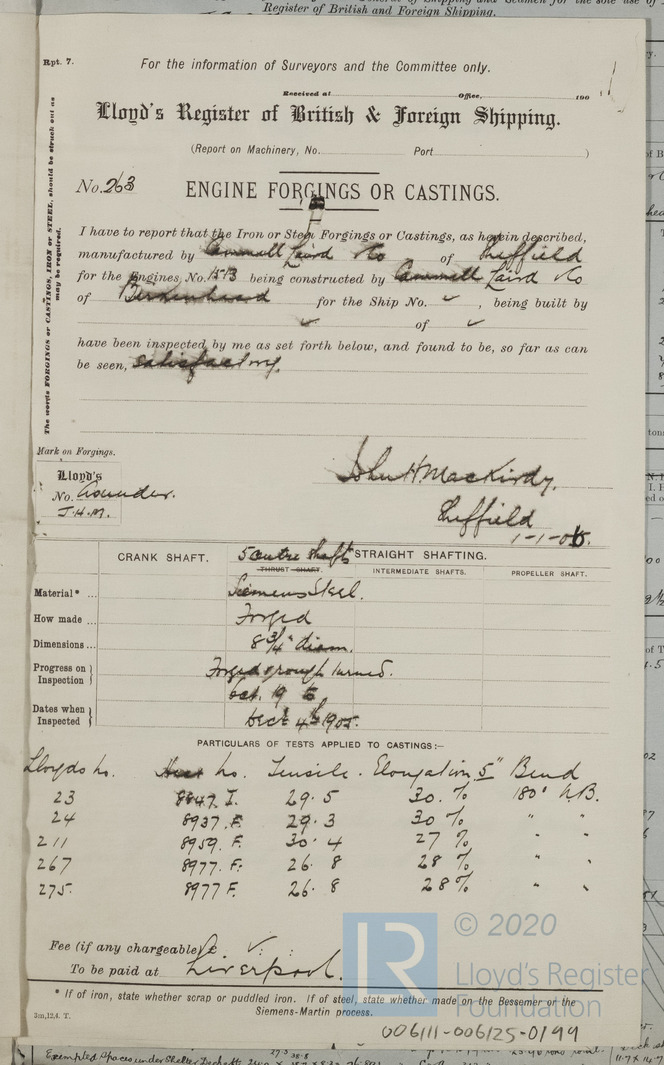 Register of British and Foreign Shipping.
Rpt. 7.
For the information of Surveyors and the Committee only.
Received at Office, 190
Lloyd's Register of British & Foreign Shipping.
(Report on Machinery, No. Port )
No. 263
ENGINE FORGINGS OR CASTINGS.
The words FORGINGS or CASTINGS, IRON or STEEL, should be struck out as
may be required.
I have to report that the Iron or Steel Forgings or Castings, as herein described,
manufactured by Cammell Laird & Co of Sheffield
for the Engines No. 1513 being constructed by Cammell Laird & Co
of Birkenhead for the Ship No. ✓, being built by
✓ of ✓
have been inspected by me as set forth below, and found to be, so far as can
be seen, satisfactory.
Mark on Forgings.
Lloyd's
No. as under.
J.H.M.
John H MacKirdy.
Sheffield
1-1-06.
CRANK SHAFT. 5 centre shafts STRAIGHT SHAFTING.
THRUST SHAFT. INTERMEDIATE SHAFTS. PROPELLER SHAFT.
Material* ... Siemens Steel.
How made ... Forged
Dimensions ... 8 3/4" diam.
Progress on Inspection Forged & rough turned.
Dates when Inspected Oct. 19 to
Dec: 4th 1905.
PARTICULARS OF TESTS APPLIED TO CASTINGS:—
Lloyds No. Heat No. Tensile. Elongation 5" Bend
23 8947. I. 29.5 30.% 180° U.B.
24 8937. F. 29.3 30% " "
211 8959. F. 30.4 27 % " "
267 8977. F. 26.8 28 % " "
275. 8977 F. 26.8 28% " "
Fee (if any chargeable) £ ✓ : :
To be paid at Liverpool.
* If of iron, state whether scrap or puddled iron. If of steel, state whether made on the Bessemer or the
Siemens-Martin process.
3m,12,4. T.
© 2020
LR
Lloyd's Register
Foundation
006111-006125-0199
Exempted Spaces under Shelter Deck